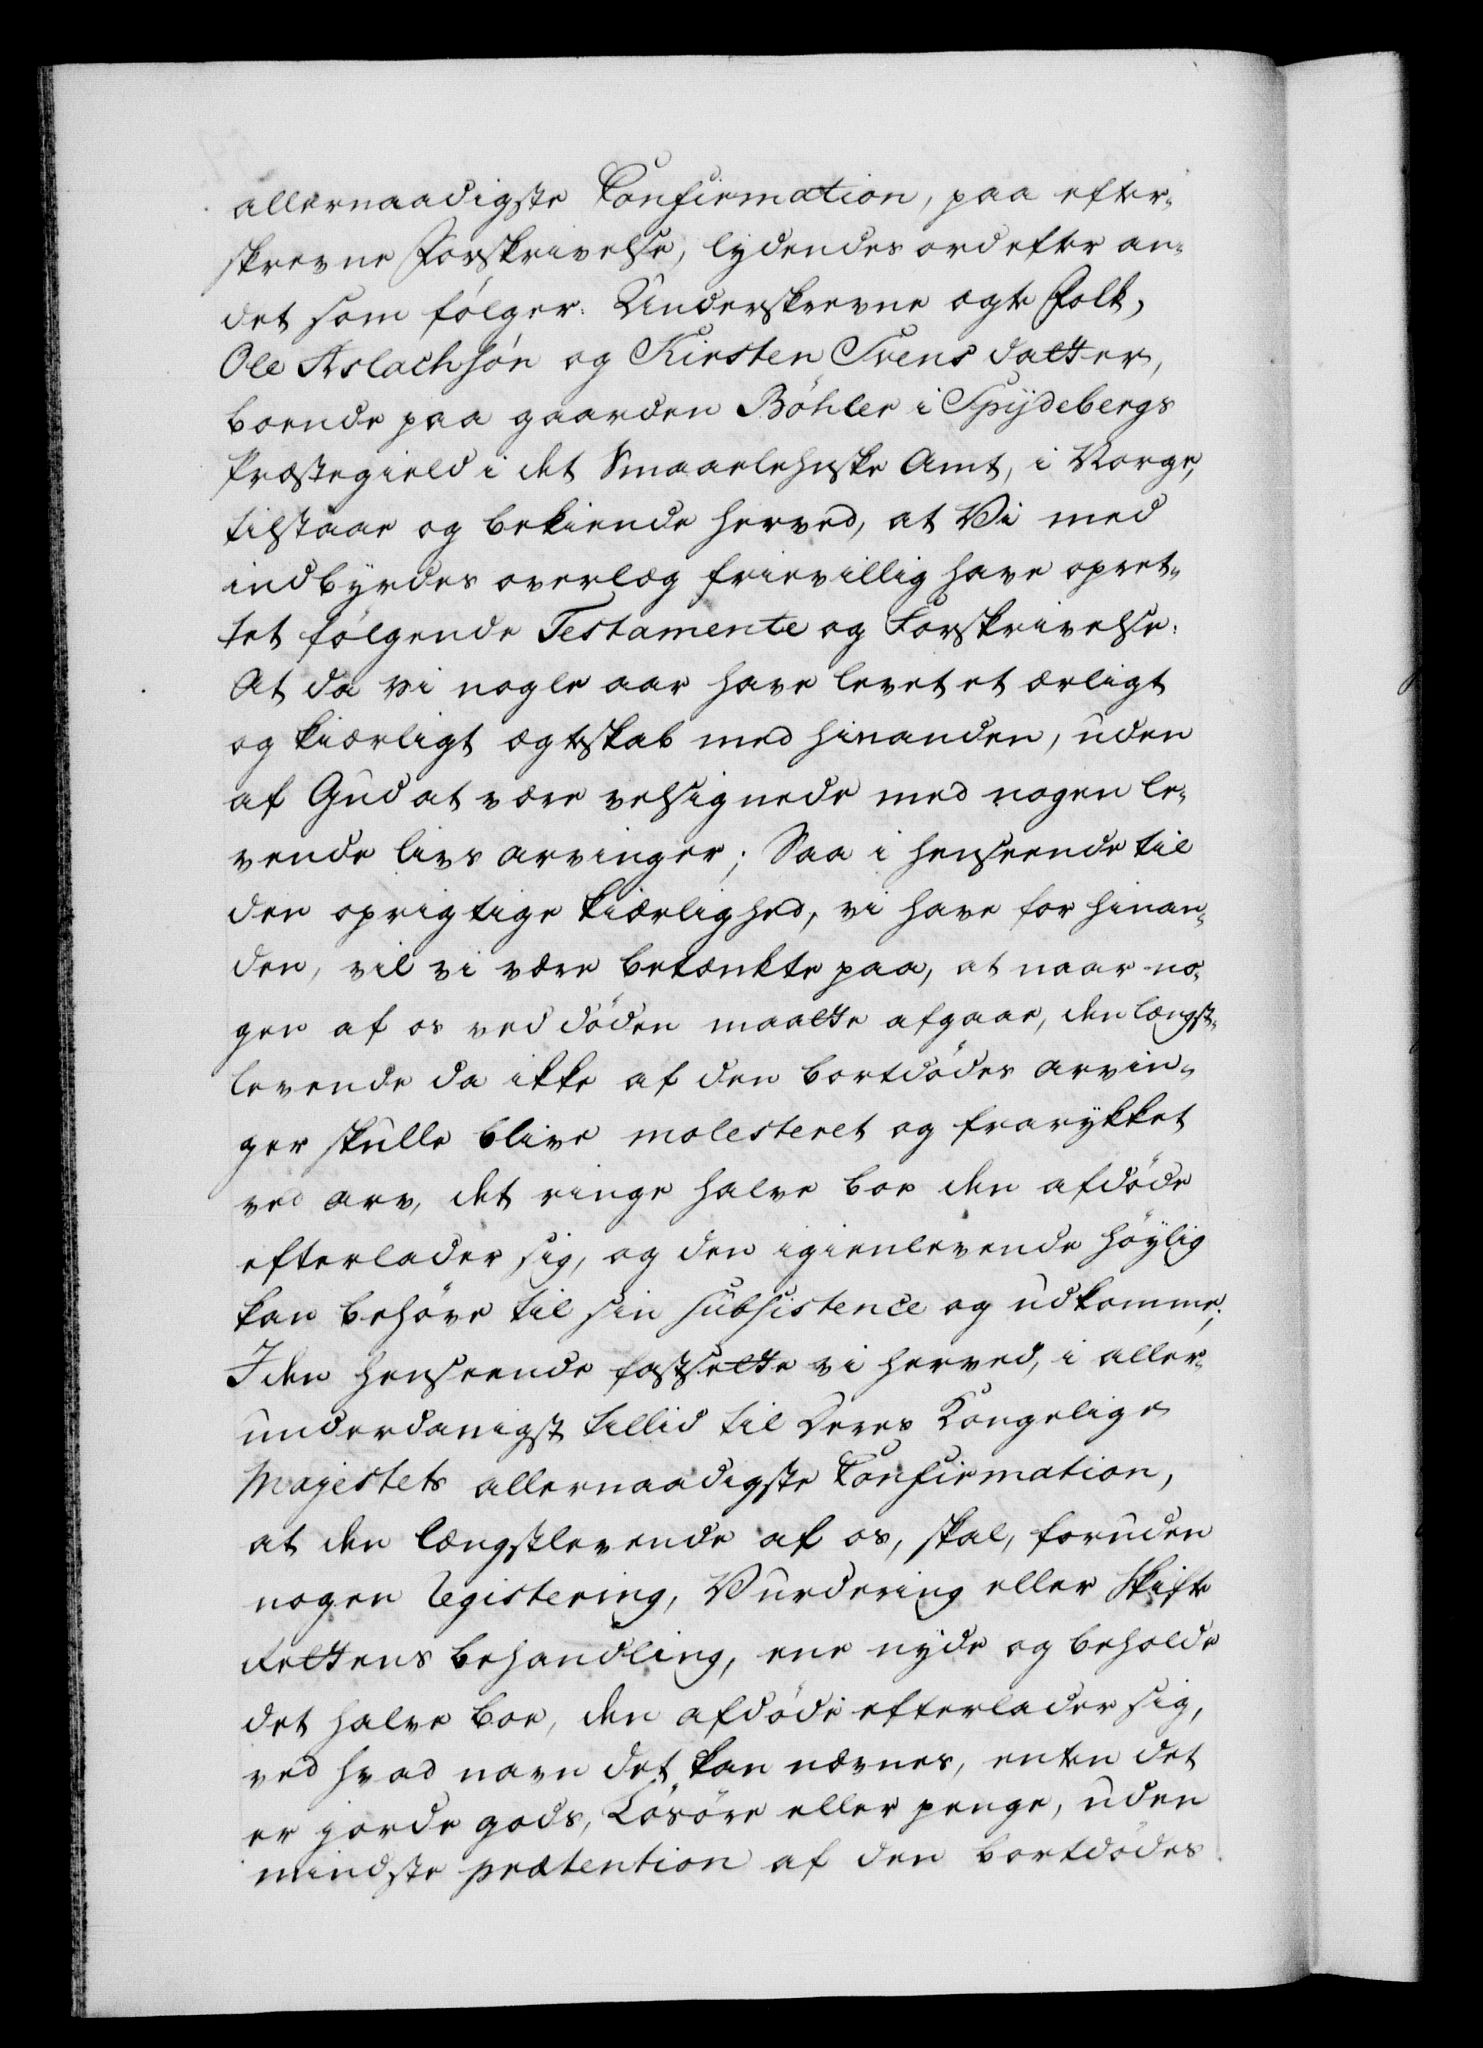 allernaadigste Confirmation, paa efter-
skrevne Forskrivelse, lydendes ord efter an-
det som følger: Underskrevne ægte Folk,
Ole Aslachsøn og Kirsten Svens datter,
boende paa gaarden Bøhler i Spydebergs
Præstegield i det Smaalehnske Amt, i Norge,
tilstaae og bekiende herved, at Vi med
indbyrdes overlæg frievillig have opret-
tet følgende Testamente og Forskrivelse:
At da vi nogle aar have levet et ærligt
og kiærligt ægteskab med hinanden, uden
af Gud at være velsignede med nogen le-
vende livs arvinger; Saa i henseende til
den oprigtige kiærlighed, vi have for hinan-
den, vil vi være betænkte paa, at naar no-
gen af os ved døden maatte afgaae, den længst-
levende da ikke af den bortdødes arvin-
ger skulle blive molesteret og frarykket
ved arv, det ringe halve boe den afdøde
efterlader sig, og den igienlevende høylig
kan behøve til sin subsistence og udkomme;
I den henseende fastsette vi herved, i aller-
underdanigst tillid til Deres Kongelige
Majestets allernaadigste Confirmation,
at den længstlevende af os, skal, foruden
nogen Registering, Vurdering eller Skifte
Rettens behandling, ene nyde og beholde
det halve boe, den afdøde efterlader sig,
ved hvad navn det kan nævnes, enten det
er jorde gods, Løsøre eller penge, uden
mindste prætention af den bortdødes